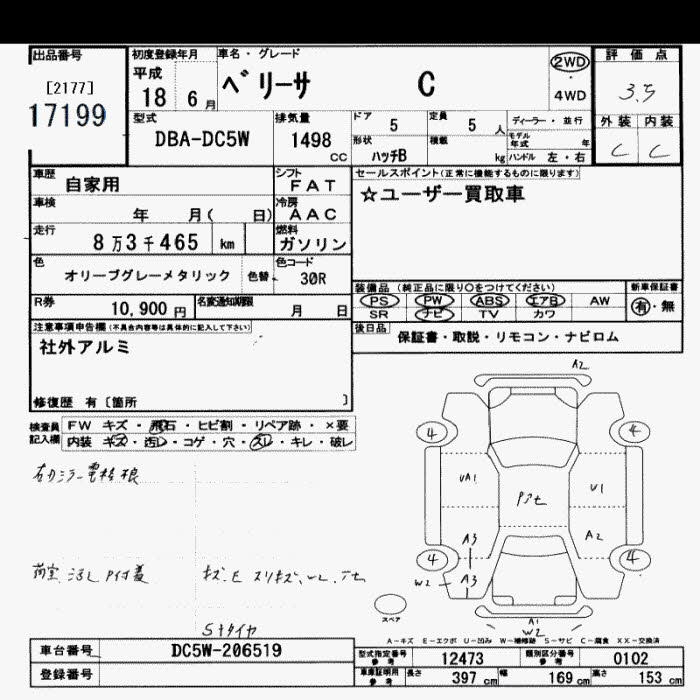 出品番号 初度登録年月 車名・グレード 評価点
[2177] 平成 18 6月 ベリーサ C 2WD 3.5
17199 4WD
型式 排気量 ドア 5 定員 5人 ディーラー・並行 外装 内装
DBA-DC5W 1498 CC 形状 ハッチB 積載 kg モデル年式 年 C C
ハンドル 左・右
車歴 自家用 シフト FAT セールスポイント(正常に機能するものに限ります)
車検 年 月( 日) 冷房 AAC ☆ユーザー買取車
走行 8万3千465 km 燃料 ガソリン
色 オリーブグレーメタリック 色替 色コード 30R
装備品 (純正品に限り○をつけてください) 新車保証書
PS PW ABS エアB AW 有・無
R券 10,900円 名変通知期限 月 日 SR ナビ TV カワ
注意事項申告欄(不具合内容等は具体的に記入して下さい) 後日品 保証書・取説・リモコン・ナビロム
社外アルミ
修復歴 有〔箇所 〕
検査員記入欄 FW キズ・飛石・ヒビ割・リペア跡・×要
内装 キズ・汚レ・コゲ・穴・スレ・キレ・破レ
A2
4 4
UA1 U1
A3 A2
4 4
W2 A3
A1
W2
スペア
Sトタイヤ
A-キズ E-エクボ U-凹み W-補修跡 S-サビ C-腐食 XX-交換済
車台番号 DC5W-206519 型式指定番号 参考 12473 類別区分番号 参考 0102
登録番号 車庫証明用 参考 長さ 397 cm 幅 169 cm 高さ 153 cm